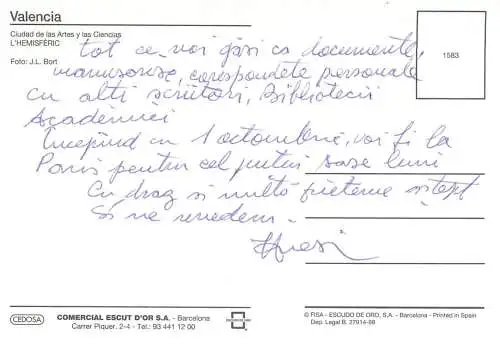 Valencia
Ciudad de las Artes y las Ciencias
L'HEMISFÈRIC
Foto: J.L. Bort
1583
tot ce voi găsi ca documente,
manuscrise, corespondete personale
cu alti scriitori, Bibliotecii
Academiei
Începînd cu 1 octombrie, voi fi la
Paris pentru cel puțin sase luni
Cu drag si multă prietenie
Si ne revedem.
CEDOSA
COMERCIAL ESCUT D'OR S.A. - Barcelona
Carrer Piquer, 2-4 - Tel.: 93 441 12 00
© FISA - ESCUDO DE ORO, S.A. - Barcelona - Printed in Spain
Dep. Legal B. 27914-99